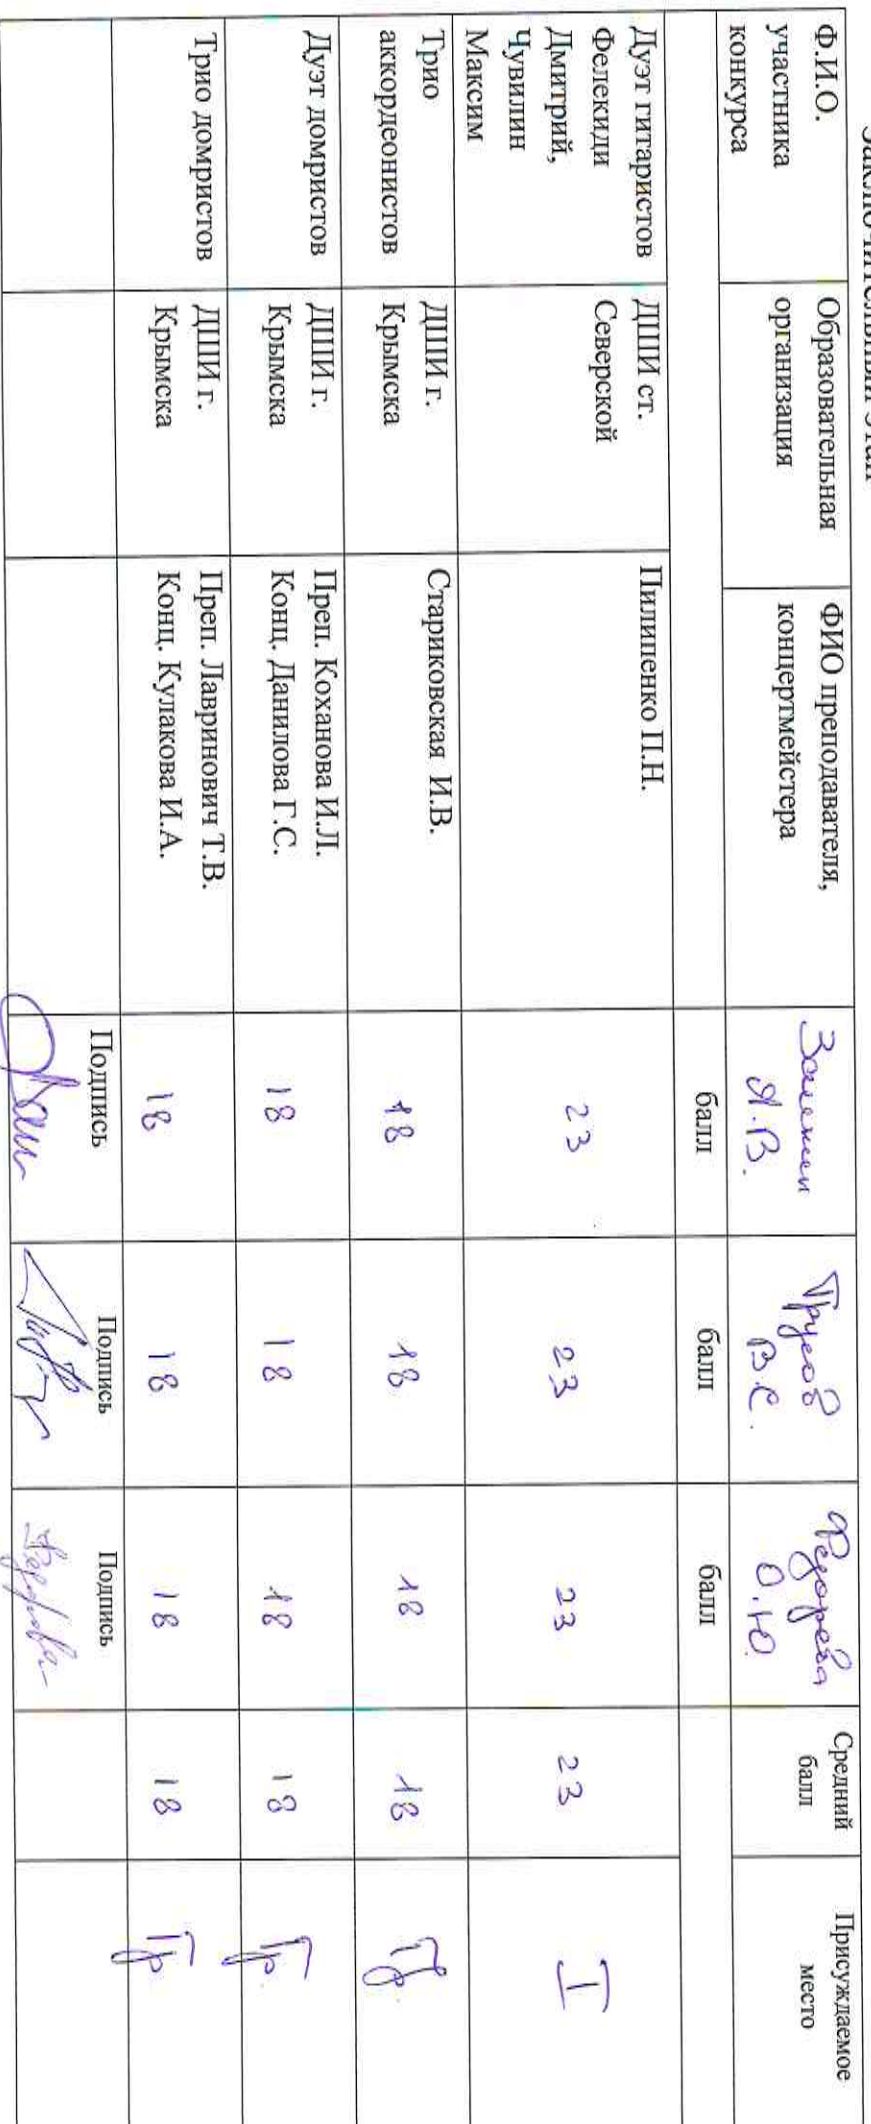 Заключительный этап
Ф.И.О.
участника
конкурса
Образовательная
организация
ФИО преподавателя,
концертмейстера
А.В.
Трусов
В.С.
Федорова
О.Ю.
Средний
балл
Присуждаемое
место
балл
балл
балл
Дуэт гитаристов
Фелекиди
Дмитрий,
Чувилин
Максим
ДШИ ст.
Северской
Пилипенко П.Н.
23
23
23
23
I
Трио
аккордеонистов
ДШИ г.
Крымска
Стариковская И.В.
18
18
18
18
Гр.
Дуэт домристов
ДШИ г.
Крымска
Преп. Коханова И.Л.
Конц. Данилова Г.С.
18
18
18
18
Гр.
Трио домристов
ДШИ г.
Крымска
Преп. Лавринович Т.В.
Конц. Кулакова И.А.
18
18
18
18
Гр
Подпись
Подпись
Подпись